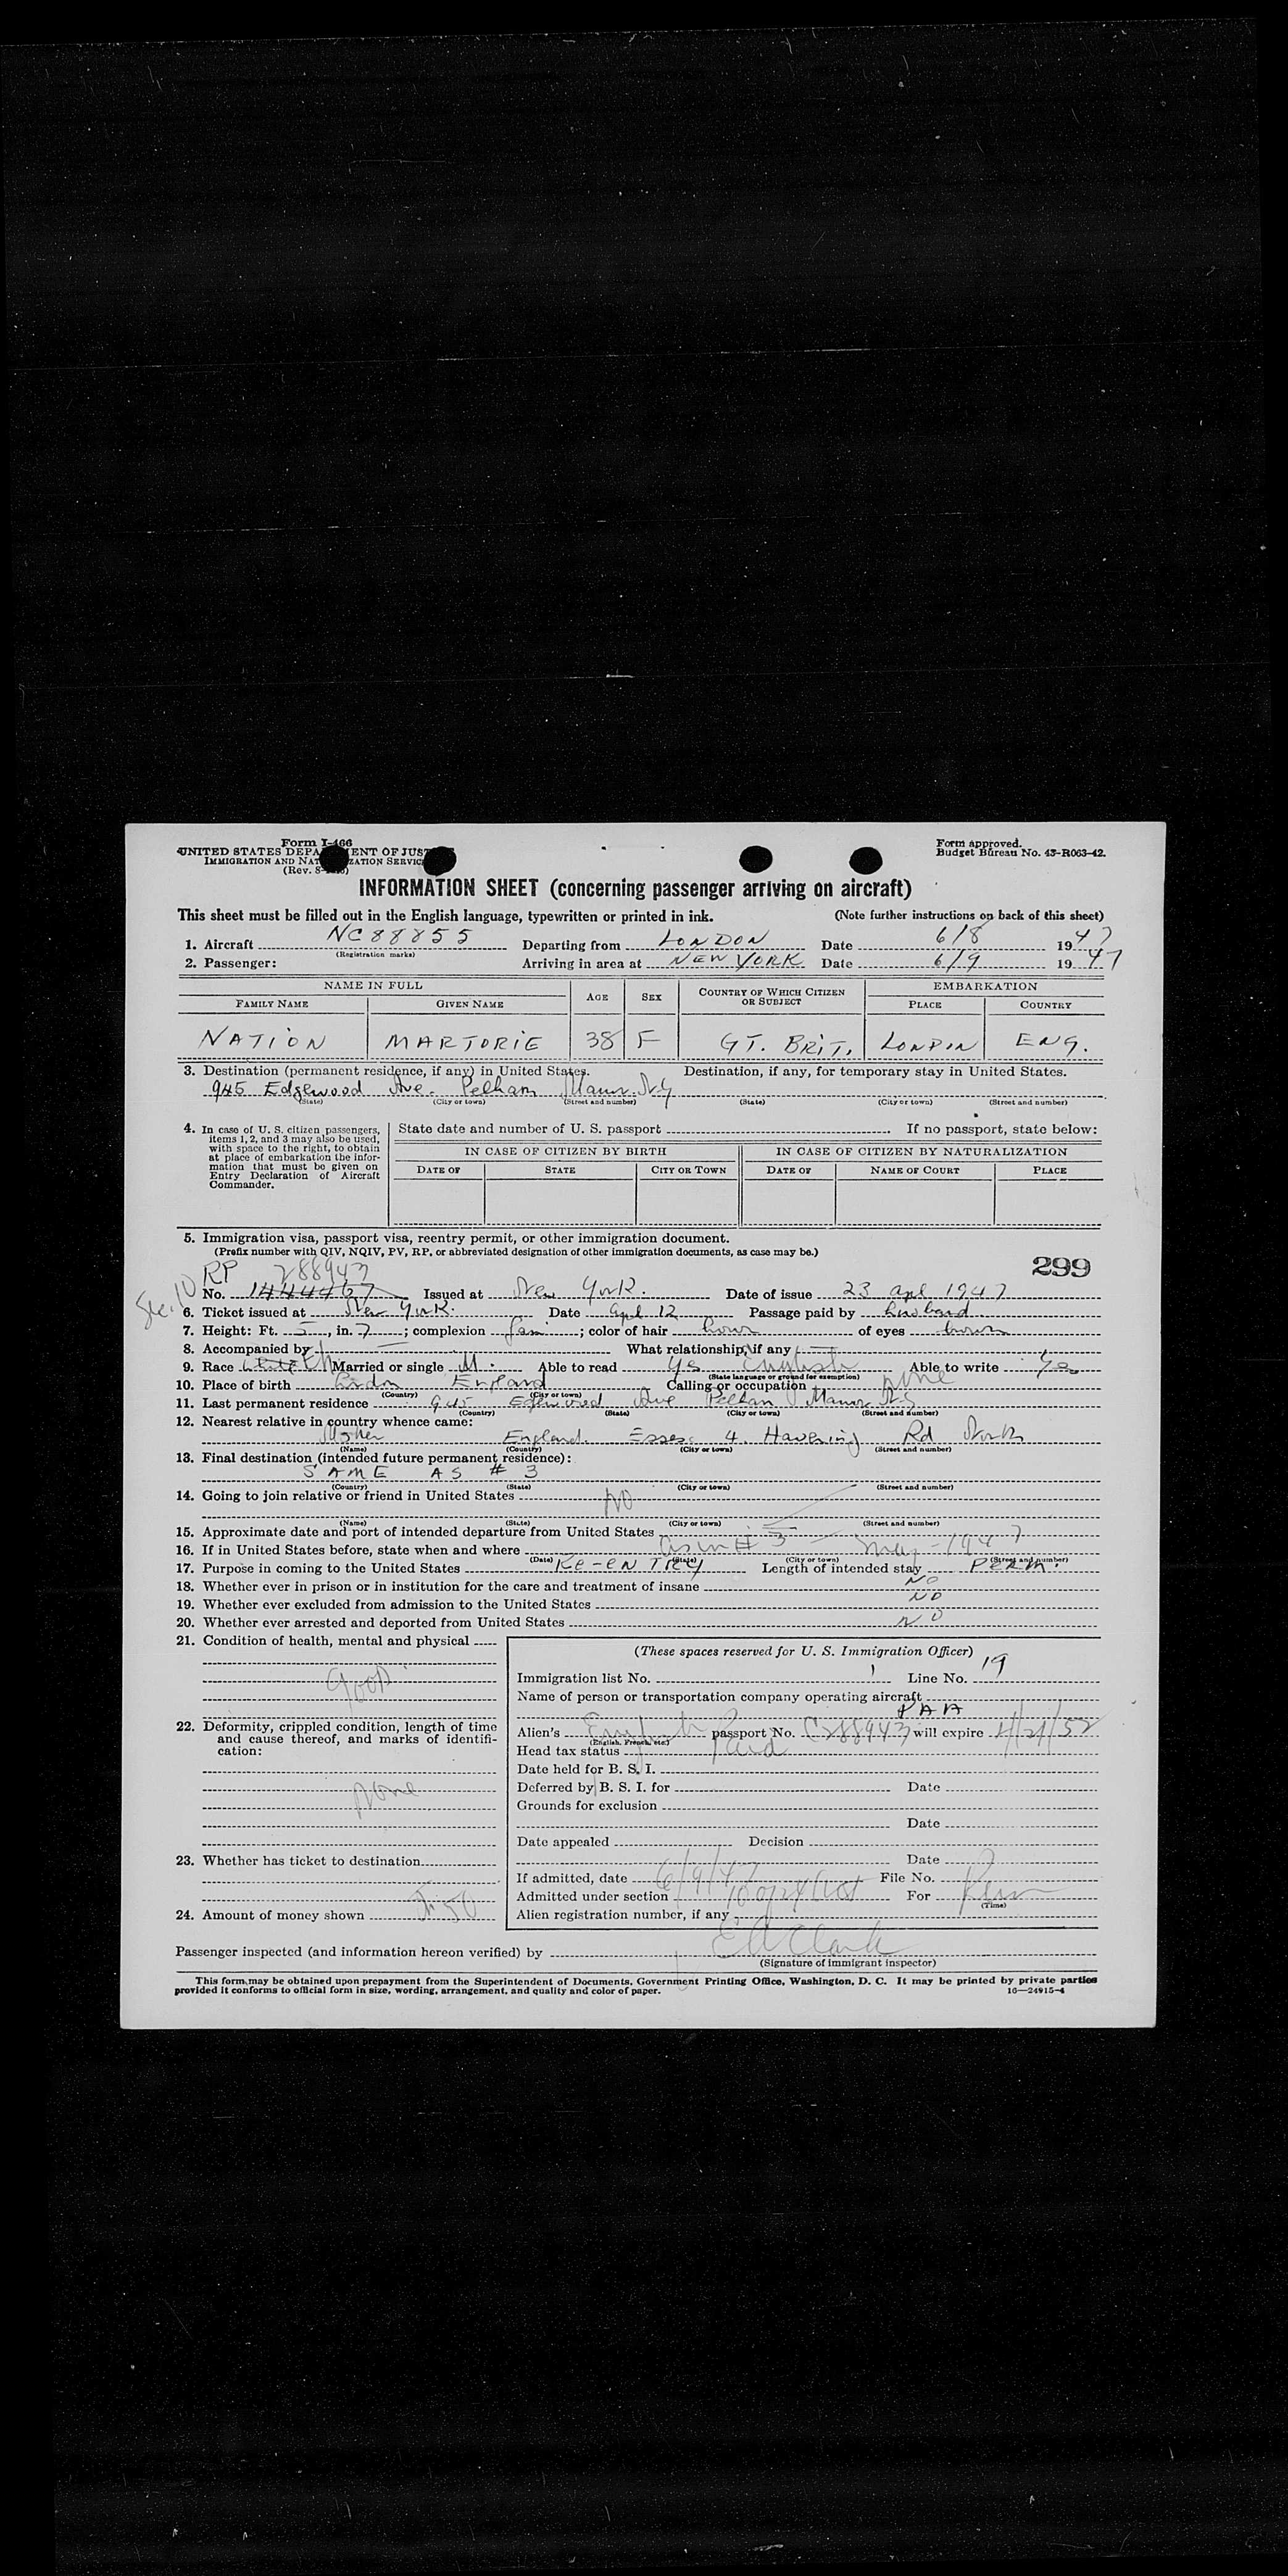 Form I-466
UNITED STATES DEPARTMENT OF JUSTICE
IMMIGRATION AND NATURALIZATION SERVICE
(Rev. 8-
Form approved.
Budget Bureau No. 43-R063-42.
INFORMATION SHEET (concerning passenger arriving on aircraft)
This sheet must be filled out in the English language, typewritten or printed in ink. (Note further instructions on back of this sheet)
1. Aircraft NC88855 Departing from LONDON Date 6/8 1947
(Registration marks)
2. Passenger: Arriving in area at NEW YORK Date 6/9 1947
NAME IN FULL AGE SEX COUNTRY OF WHICH CITIZEN OR SUBJECT EMBARKATION
FAMILY NAME GIVEN NAME PLACE COUNTRY
NATION MARJORIE 38 F GT. BRIT. LONDON ENG.
3. Destination (permanent residence, if any) in United States. Destination, if any, for temporary stay in United States.
945 Edgewood Ave. Pelham Manor N.Y
(State) (City or town) (Street and number) (State) (City or town) (Street and number)
4. In case of U. S. citizen passengers, items 1, 2, and 3 may also be used, with space to the right, to obtain at place of embarkation the information that must be given on Entry Declaration of Aircraft Commander.
State date and number of U. S. passport If no passport, state below:
IN CASE OF CITIZEN BY BIRTH IN CASE OF CITIZEN BY NATURALIZATION
DATE OF STATE CITY OR TOWN DATE OF NAME OF COURT PLACE
5. Immigration visa, passport visa, reentry permit, or other immigration document.
(Prefix number with QIV, NQIV, PV, RP, or abbreviated designation of other immigration documents, as case may be.)
299
RP 288943
Sec. 10
No. 1444467 Issued at New York. Date of issue 23 apl 1947
6. Ticket issued at New York. Date Apl 12 Passage paid by husband
7. Height: Ft. 5, in. 7; complexion fair; color of hair brown of eyes brown
8. Accompanied by — What relationship, if any —
9. Race white Married or single M. Able to read yes English Able to write Yes
(State language or ground for exemption)
10. Place of birth London England Calling or occupation none
(Country) (City or town)
11. Last permanent residence 945 Edgewood Ave Pelham Manor N.Y
(Country) (State) (City or town) (Street and number)
12. Nearest relative in country whence came:
Mother England. Essex 4. Havering Rd
(Name) (Country) (City or town) (Street and number)
13. Final destination (intended future permanent residence):
SAME AS # 3
(Country) (State) (City or town) (Street and number)
14. Going to join relative or friend in United States NO
(Name) (State) (City or town) (Street and number)
15. Approximate date and port of intended departure from United States —
16. If in United States before, state when and where as in # 3 — May - 1947
(Date) (State) (City or town) (Street and number)
17. Purpose in coming to the United States RE-ENTRY Length of intended stay PERM.
18. Whether ever in prison or in institution for the care and treatment of insane NO
19. Whether ever excluded from admission to the United States NO
20. Whether ever arrested and deported from United States NO
21. Condition of health, mental and physical
good
22. Deformity, crippled condition, length of time and cause thereof, and marks of identification:
none
23. Whether has ticket to destination
24. Amount of money shown 50
(These spaces reserved for U. S. Immigration Officer)
Immigration list No. 1 Line No. 19
Name of person or transportation company operating aircraft
PAA
Alien's English passport No. C288943 will expire 4/21/52
(English, French, etc.)
Head tax status Paid
Date held for B. S. I.
Deferred by B. S. I. for Date
Grounds for exclusion
Date
Date appealed Decision
Date
If admitted, date 6/9/47 File No.
Admitted under section 10 of 24 Act For Perm
(Time)
Alien registration number, if any
Passenger inspected (and information hereon verified) by E A Clark
(Signature of immigrant inspector)
This form may be obtained upon prepayment from the Superintendent of Documents, Government Printing Office, Washington, D. C. It may be printed by private parties
provided it conforms to official form in size, wording, arrangement, and quality and color of paper. 16—24915-4